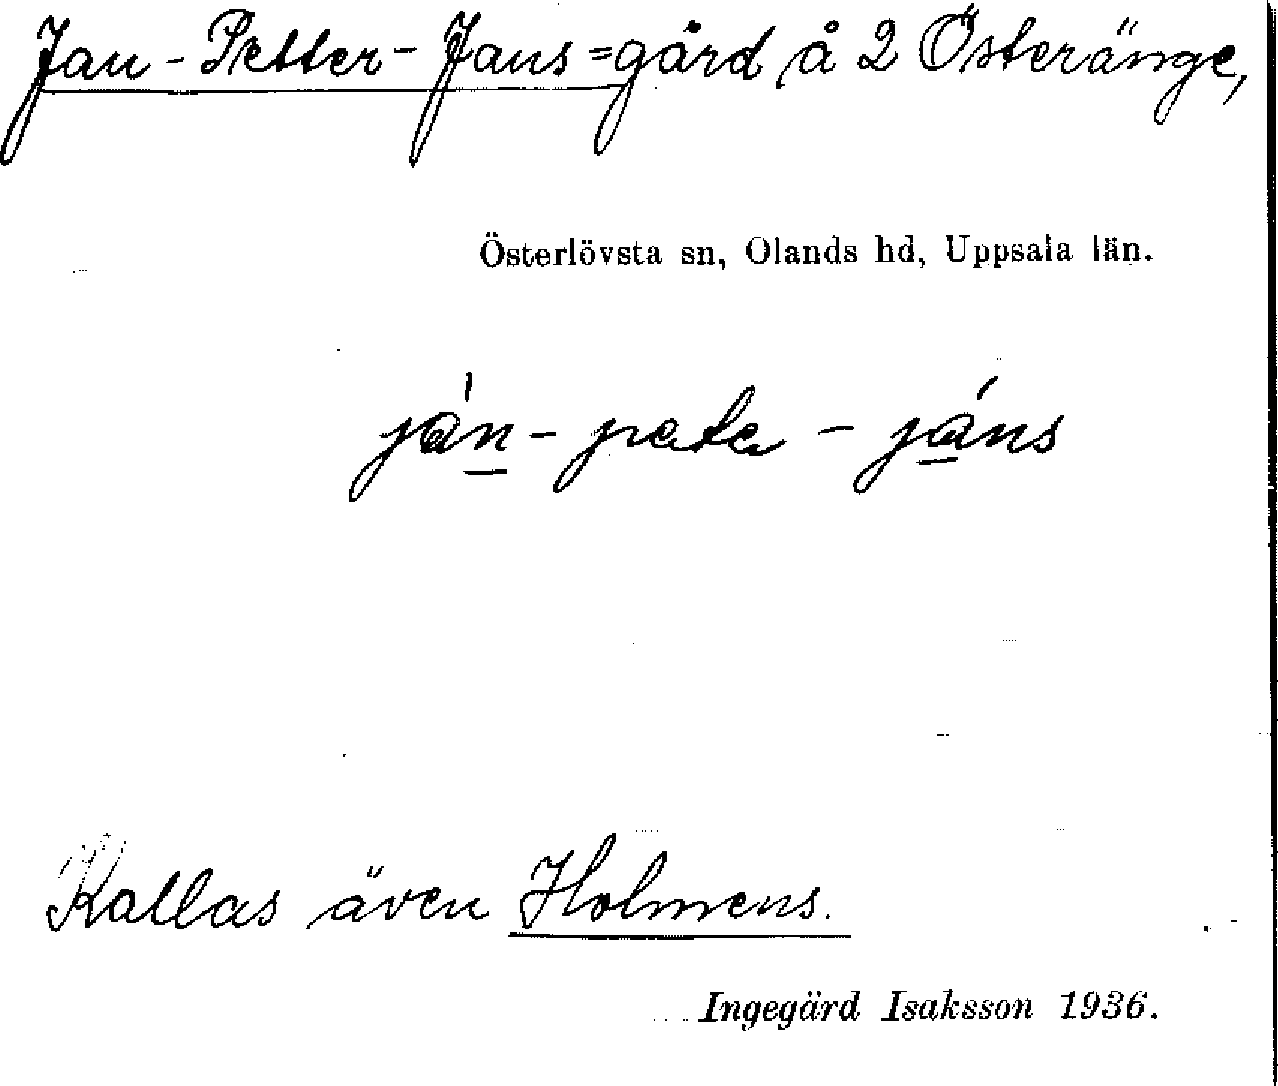 Jan-Petter-Jans=gård å 2 Österänge,
Österlövsta sn, Olands hd, Uppsala län.
ján-peta-jáns
Kallas även Holmens.
Ingegärd Isaksson 1936.